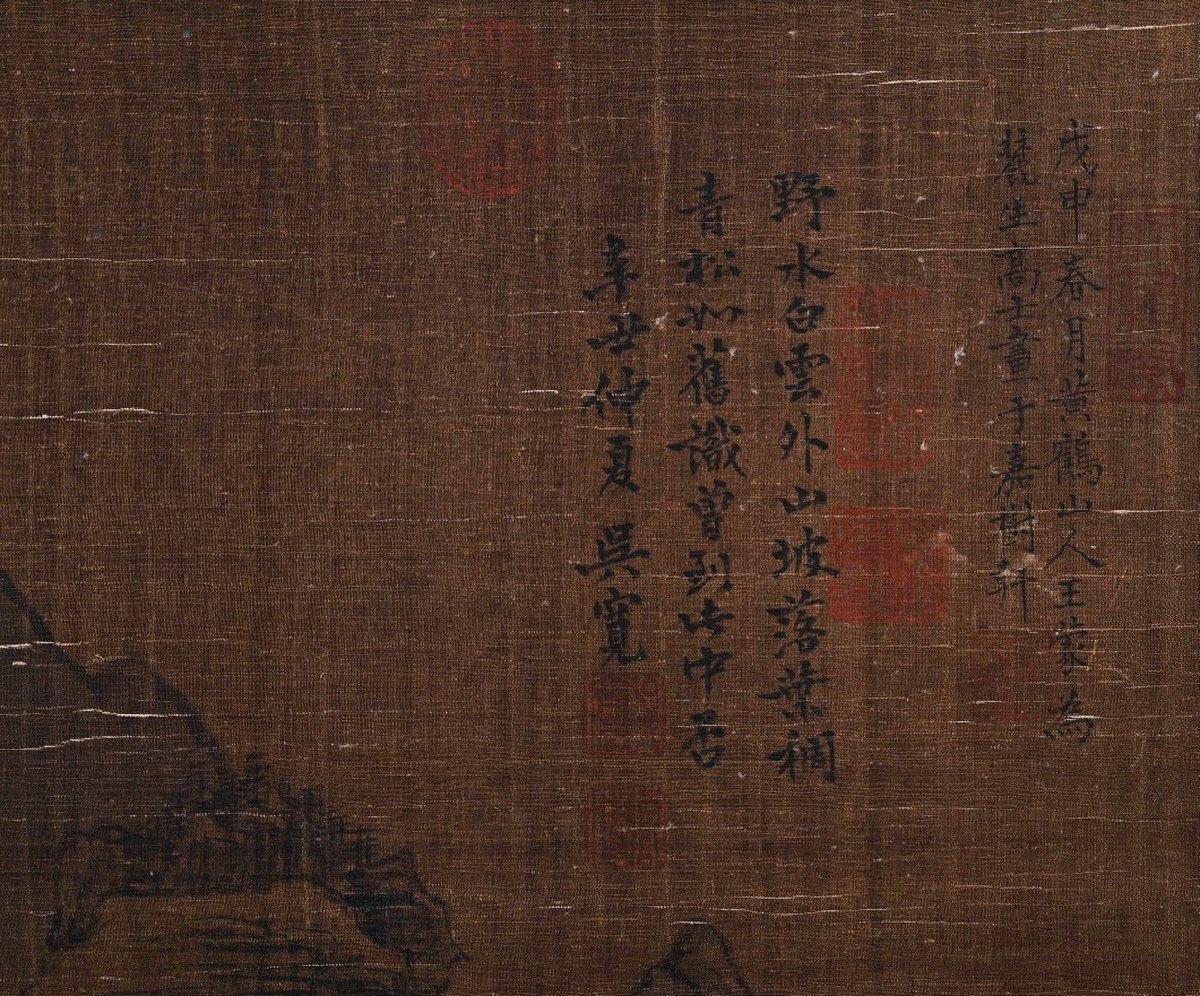 戊申春月黃鶴山人王蒙為
麓生高士畫于嘉樹軒
野水白雲外山坡落葉稠
青松如舊識曾到此中否
辛丑仲夏吳寬